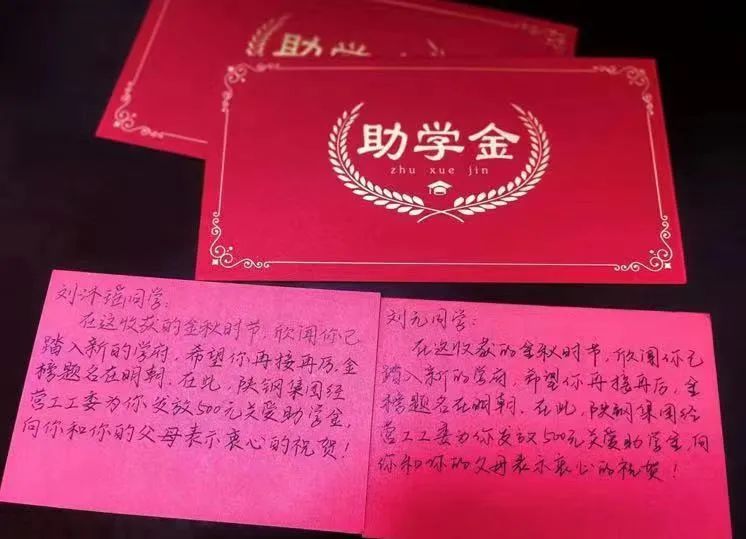 助学金
zhu xue jin
刘沐瑶同学：
在这收获的金秋时节，欣闻你已
踏入新的学府，希望你再接再厉，金
榜题名在明朝。在此，陕钢集团经
营工工委为你发放500元关爱助学金，
向你和你的父母表示衷心的祝贺！
刘元同学：
在这收获的金秋时节，欣闻你已
踏入新的学府，希望你再接再厉，金
榜题名在明朝。在此，陕钢集团经
营工工委为你发放500元关爱助学金，向
你和你的父母表示衷心的祝贺！